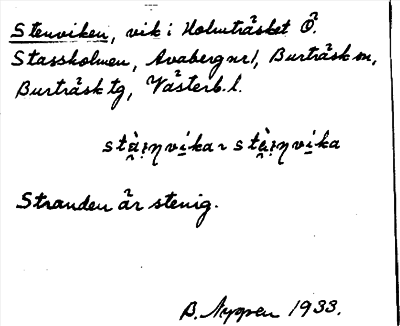 Stenviken, vik i Holmträsket Ö.
Stassholmen, Avaberg nr 1, Burträsk sn,
Burträsk tg, Västerb. l.
stài̯n̥vika ~ stài̯n̥vika
Stranden är stenig.
B. Nygren 1933.